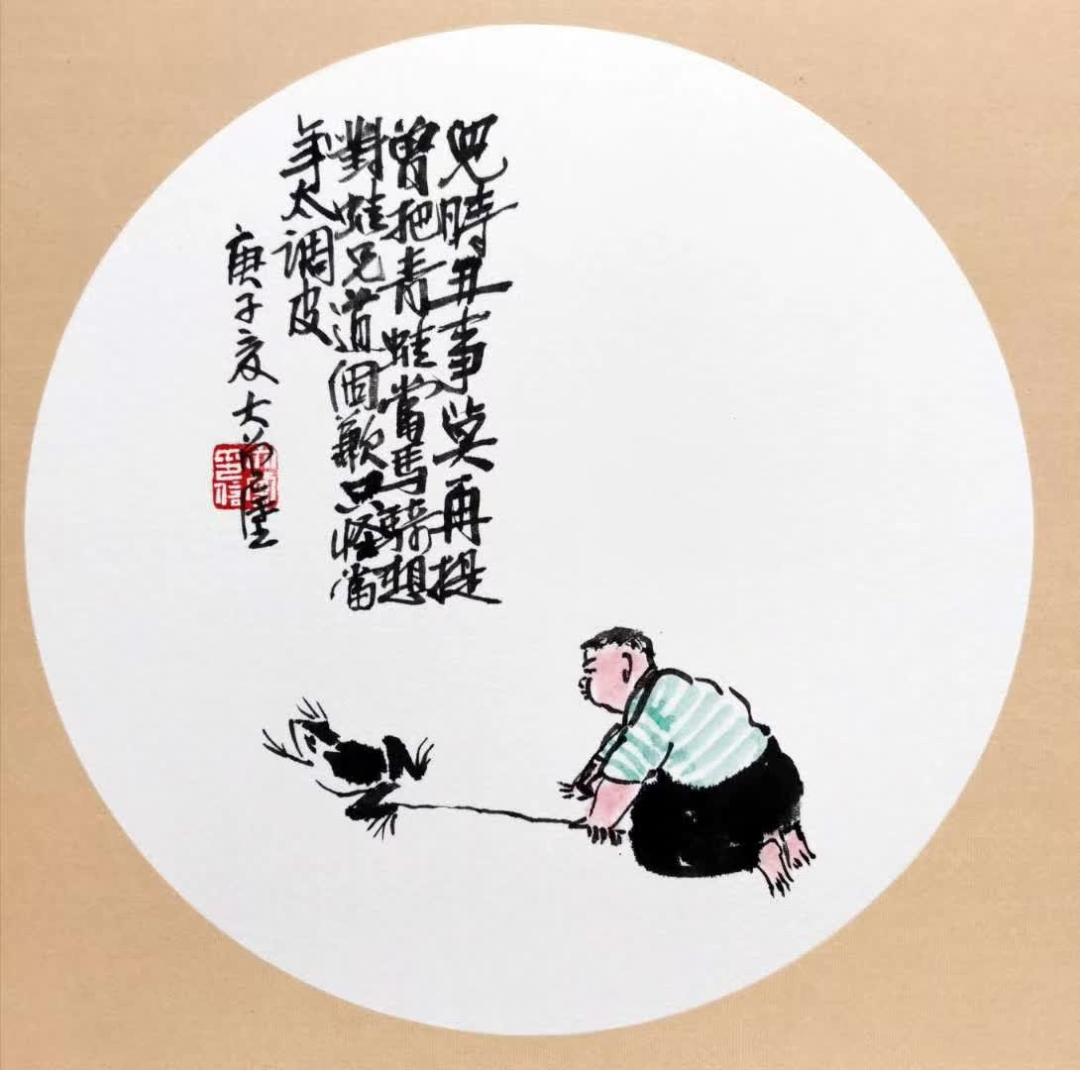 兒時丑事莫再提
曾把青蛙當馬騎想
對蛙兄道個歉只怪當
年太调皮
庚子夏大